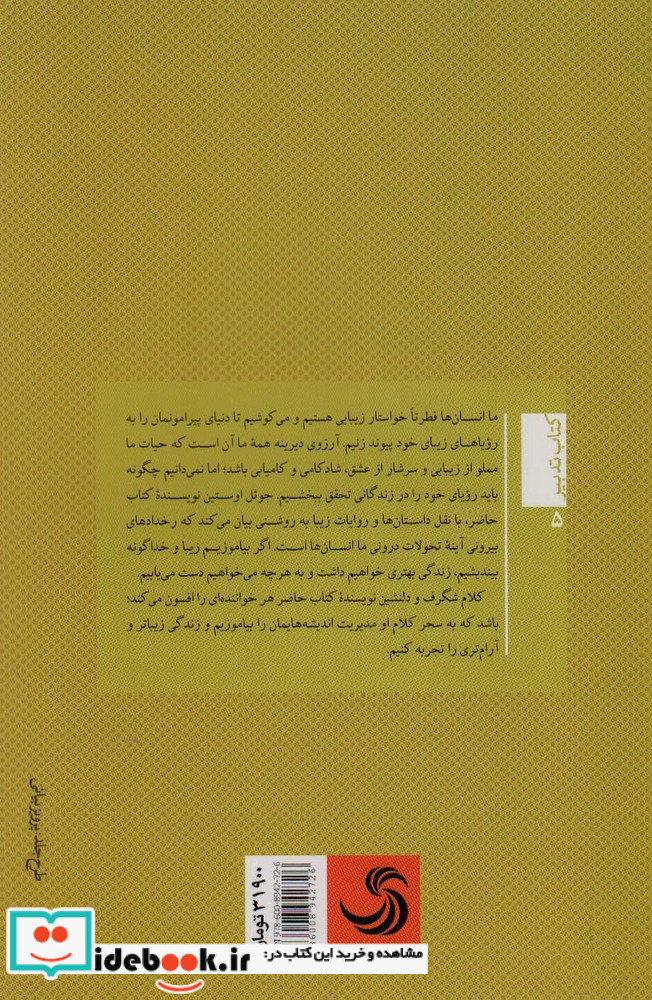 ما انسان‌ها فطرتاً خواستار زیبایی هستیم و می‌کوشیم تا دنیای پیرامونمان را به
رؤیاهای زیبای خود پیوند زنیم. آرزوی دیرینه همهٔ ما آن است که حیات ما
مملو از زیبایی و سرشار از عشق، شادکامی و کامیابی باشد؛ اما نمی‌دانیم چگونه
باید رؤیای خود را در زندگانی تحقق ببخشیم. جوئل اوستین نویسندهٔ کتاب
حاضر، با نقل داستان‌ها و روایات زیبا به روشنی بیان می‌کند که رخدادهای
بیرونی آینهٔ تحولات درونی ما انسان‌ها است. اگر بیاموزیم زیبا و خداگونه
بیندیشیم، زندگی بهتری خواهیم داشت و به هرچه می‌خواهیم دست می‌یابیم.
کلام شگرف و دلنشین نویسندهٔ کتاب حاضر هر خواننده‌ای را افسون می‌کند؛
باشد که به سحر کلام او مدیریت اندیشه‌هایمان را بیاموزیم و زندگی زیباتر و
آرام‌تری را تجربه کنیم.
کتاب تدبیر
۵
طرح جلد: پرویز بیانی
۳۱۹۰۰ تومان
978-600-8942-72-6
86008942726
مشاهده و خرید این کتاب در:
idebook.ir